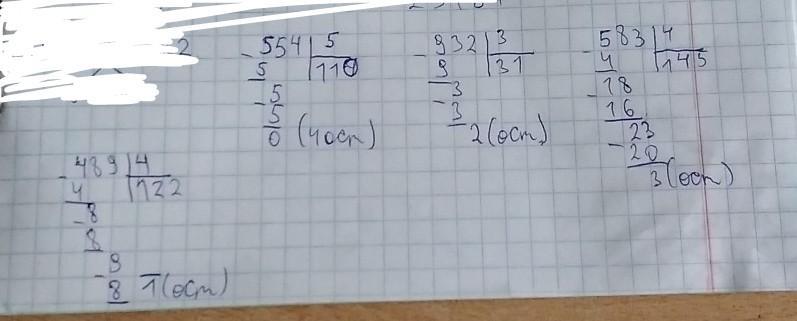 2
-554|5
5 |110
-5
5
0 (4ост)
-932|3
9 |31
3
-3
2(ост)
-583|4
4 |145
-18
16
23
-20
3(ост)
-489|4
4 |122
-8
8
-9
8 1(ост)